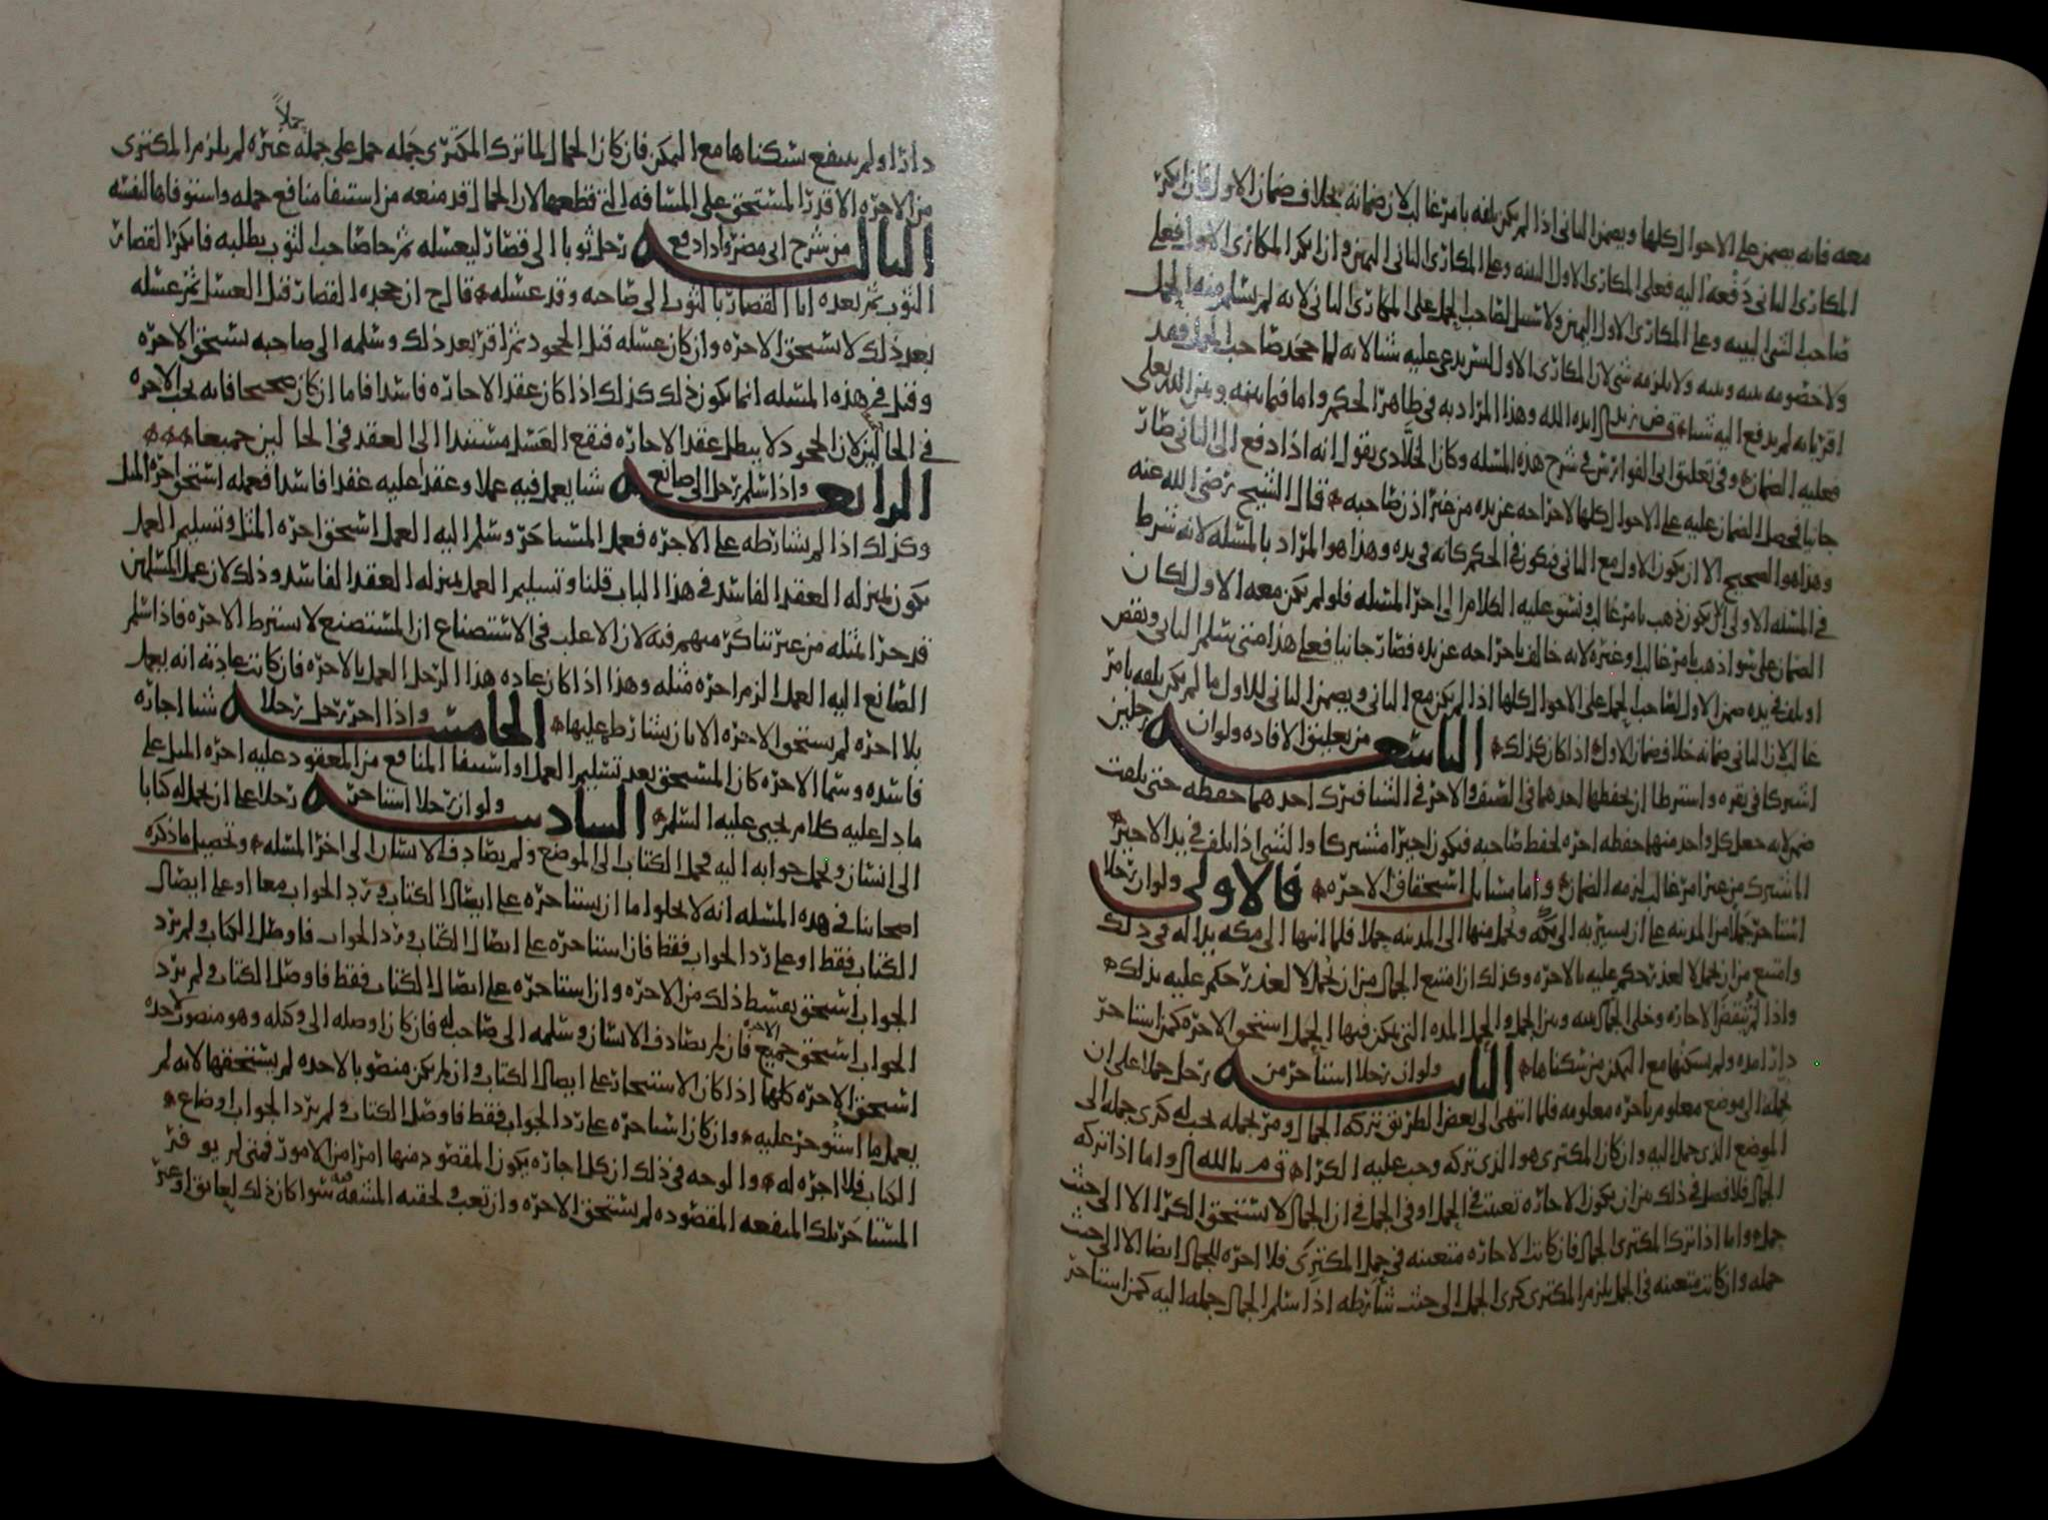 معه فانه يضمن على الاحوال كلها ويضمن الثاني اذا لم يكن تلفه بامر غالب لان ضمانه بخلاف ضمان الاول فان انكر
المكاري الثاني دفعه اليه فعلى المكاري الاول البينه وعلى المكاري الثاني اليمين وان انكر المكاري الاول فعلى
صاحب الشي البينه وعلى المكاري الاول اليمين ولا سبيل لصاحب الحمل على المكاري الثاني لانه لم يتسلم منه الحمل
ولا خصومه بينه وبينه ولا يلزمه شي لان المكاري الاول ليس يدعي عليه شيا لانه لما جحد صاحب الحمل فقد
اقر بانه لم يدفع اليه شيا وهذا المراد به في ظاهر الحكم واما فيما بينه وبين الله تعالى
فعليه الضمان وفي تعليق ابي الفوارس في شرح هذه المسله وكان الخلادي يقول انه اذا دفع الى الثاني صار
جانيا فحصل الضمان عليه على الاحوال كلها لاخراجه عن يده من غير اذن صاحبه قال الشيخ رضي الله عنه
وهذا هو الصحيح الا ان يكون الاول مع الثاني فيكون في الحكم كانه في يده وهذا هو المراد بالمسله لانه شرط
في المسله الاولى ان يكون ذهب بامر غالب ونسق عليه الكلام الى اخر المسله فلو لم يكن معه الاول لكان
الضمان على سوا ذهب بامر غالب او غيره لانه خالف باخراجه عن يده فصار جانيا فعلى هذا متى تسلم الثاني ونقص
او تلف في يده ضمن الاول لصاحب الحمل على الاحوال كلها اذا لم يكن مع الثاني ويضمن الثاني للاول ما لم يكن تلفه بامر
غالب لان الثاني ضمانه خلاف ضمان الاول اذا كان كذلك التاسعه من تعليق الافاده ولو ان رجلين
اشتركا في بقره واشترطا ان يحفظها احدهما في الصيف والاخر في الشتا فترك احدهما حفظه حتى تلفت
ضمن لانه جعل كل واحد منهما حفظه اجره لحفظ صاحبه فيكون اجيرا مشتركا والشي اذا تلف في يد الاجير
المشترك من غير امر غالب لزمه الضمان واما مسايل استحقاق الاجره فالاولى ولو ان رجلا
استاجر جملا من المدينه على ان يسير به الى مكه ويحمل منها الى المدينه حملا فلما انتهيا الى مكه بدا له في ذلك
وامتنع من ان يحمل لا لعذر حكم عليه بالاجره وكذلك ان امتنع الجمال من ان يحمل لا لعذر حكم عليه بذلك
واذا لم تنتقض الاجاره وخلى الجمال بينه وبين الجمل والحمل المده التي يمكن فيها الحمل استحق الاجره كمن استاجر
دارا مده ولم يسكنها مع التمكن من سكناها الثانيه ولو ان رجلا استاجر من رجل جملا على ان
يحمله الى موضع معلوم باجره معلومه فلما انتهى الى بعض الطريق تركه الجمال ومر بجمله يجب له كرى حمله الى
الموضع الذي حمل اليه وان كان المكتري هو الذي تركه وجب عليه الكرا واما اذا تركه
الجمال فلا فصل في ذلك بين ان يكون الاجاره تعينت في الجمل او في الحمل في ان الجمال لا يستحق الكرا الا الى حيث
حمله واما اذا ترك المكتري الجمال فان كانت الاجاره متعينه في حمل المكتري فلا اجره للجمال ايضا الا الى حيث
حمله وان كانت متعينه في الجمل يلزم المكتري كرى الجمل الى حيث شارطه اذا سلم الجمال جمله اليه كمن استاجر
دارا ولم ينتفع بسكناها مع التمكن فان كان الجمال لما ترك المكتري جمله حمل على جمله حملا غيره لم يلزم المكتري
من الاجره الا قدر المستحق على المسافه التي قطعها لان الجمال قد منعه من استيفا منافع جمله واستوفاها لنفسه
الثالثه من شرح ابي مضر واذا دفع رجل ثوبا الى قصار ليغسله ثم جا صاحب الثوب يطلبه فانكر القصار
الثوب ثم بعده اتا القصار بالثوب الى صاحبه وقد غسله قال ح ان جحده القصار قبل الغسل ثم غسله
بعد ذلك لا يستحق الاجره وان كان غسله قبل الجحود ثم اقر بعد ذلك وسلمه الى صاحبه يستحق الاجره
وقيل في هذه المسله انما يكون ذلك كذلك اذا كان عقد الاجاره فاسدا فاما ان كان صحيحا فانه يجب الاجره
في الحالين لان الجحود لا يبطل عقد الاجاره فيقع الغسل مستندا الى العقد في الحالين جميعا
الرابعه واذا سلم رجل الى صانع شيا يعمل فيه عملا وعقد عليه عقدا فاسدا فعمله استحق اجره المثل
وكذلك اذا لم يشارطه على الاجره فعمل المستاجر وسلم اليه العمل استحق اجره المثل وتسليم العمل
يكون بمنزله العقد الفاسد في هذا الباب قلنا وتسليم العمل بمنزله العقد الفاسد وذلك لان عمل المسلمين
قد جرا بمثله من غير تناكر منهم فيه لان الاغلب في الاستصناع ان المستصنع لا يشترط الاجره فاذا سلم
الصانع اليه العمل الزم اجره مثله وهذا اذا كان عاده هذا الرجل العمل بالاجره فان كانت عادته انه يعمل
بلا اجره لم يستحق الاجره الا بان يشارط عليها الخامسه واذا اجر رجل رجلا شيا اجاره
فاسده وسما الاجره كان المستحق بعد تسليم العمل او استيفا المنافع من المعقود عليه اجره المثل على
ما دل عليه كلام يحيى عليه السلم السادسه ولو ان رجلا استاجر رجلا على ان يحمل له كتابا
الى انسان ويحمل جوابه اليه فحمل الكتاب الى الموضع ولم يصادف الانسان الى اخر المسله وتحصيل ما ذكره
اصحابنا في هذه المسله انه لا يخلوا اما ان يستاجره على ايصال الكتاب ورد الجواب معا او على ايصال
الكتاب فقط او على رد الجواب فقط فان استاجره على ايصال الكتاب ورد الجواب فاوصل الكتاب ولم يرد
الجواب استحق بقسط ذلك من الاجره وان استاجره على ايصال الكتاب فقط فاوصل الكتاب ولم يرد
الجواب استحق جميع الاجره فان لم يصادف الانسان وسلمه الى صاحب له فان كان اوصله الى وكيله وهو منصوب لاخذه
استحق الاجره كلها اذا كان الاستيجار على ايصال الكتاب وان لم يكن منصوبا لاخذه لم يستحقها لانه لم
يعمل ما استوجر عليه وان كان استاجره على رد الجواب فقط فاوصل الكتاب ولم يرد الجواب او ضاع
الكتاب فلا اجره له والوجه في ذلك ان كل اجاره يكون المقصود منها امرا من الامور فمتى لم يوفر
المستاجر تلك المنفعه المقصوده لم يستحق الاجره وان تعب ولحقته المشقه سوا كان ذلك لعايق او غير